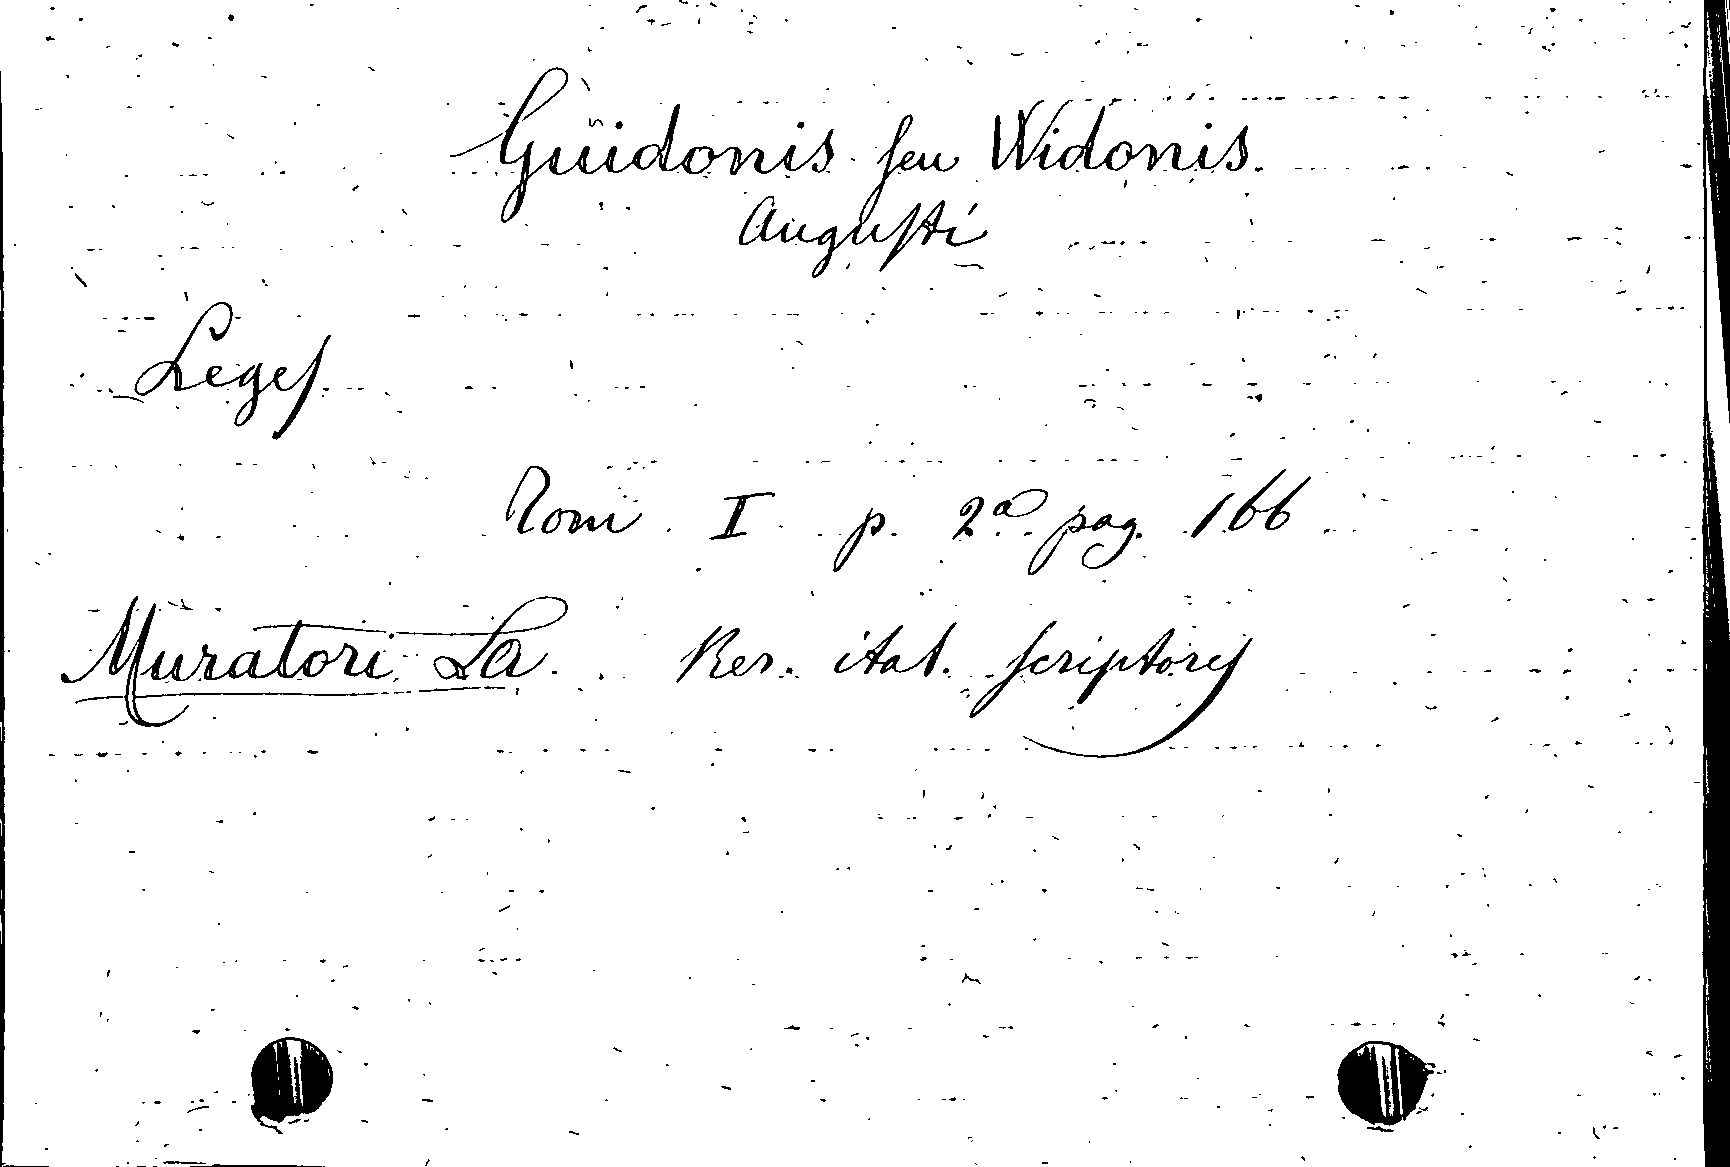 Guidonis seu Widonis.
Augusti
Leges
Tom. I p. 2a. pag. 166
Muratori La. Rer. ital. scriptores